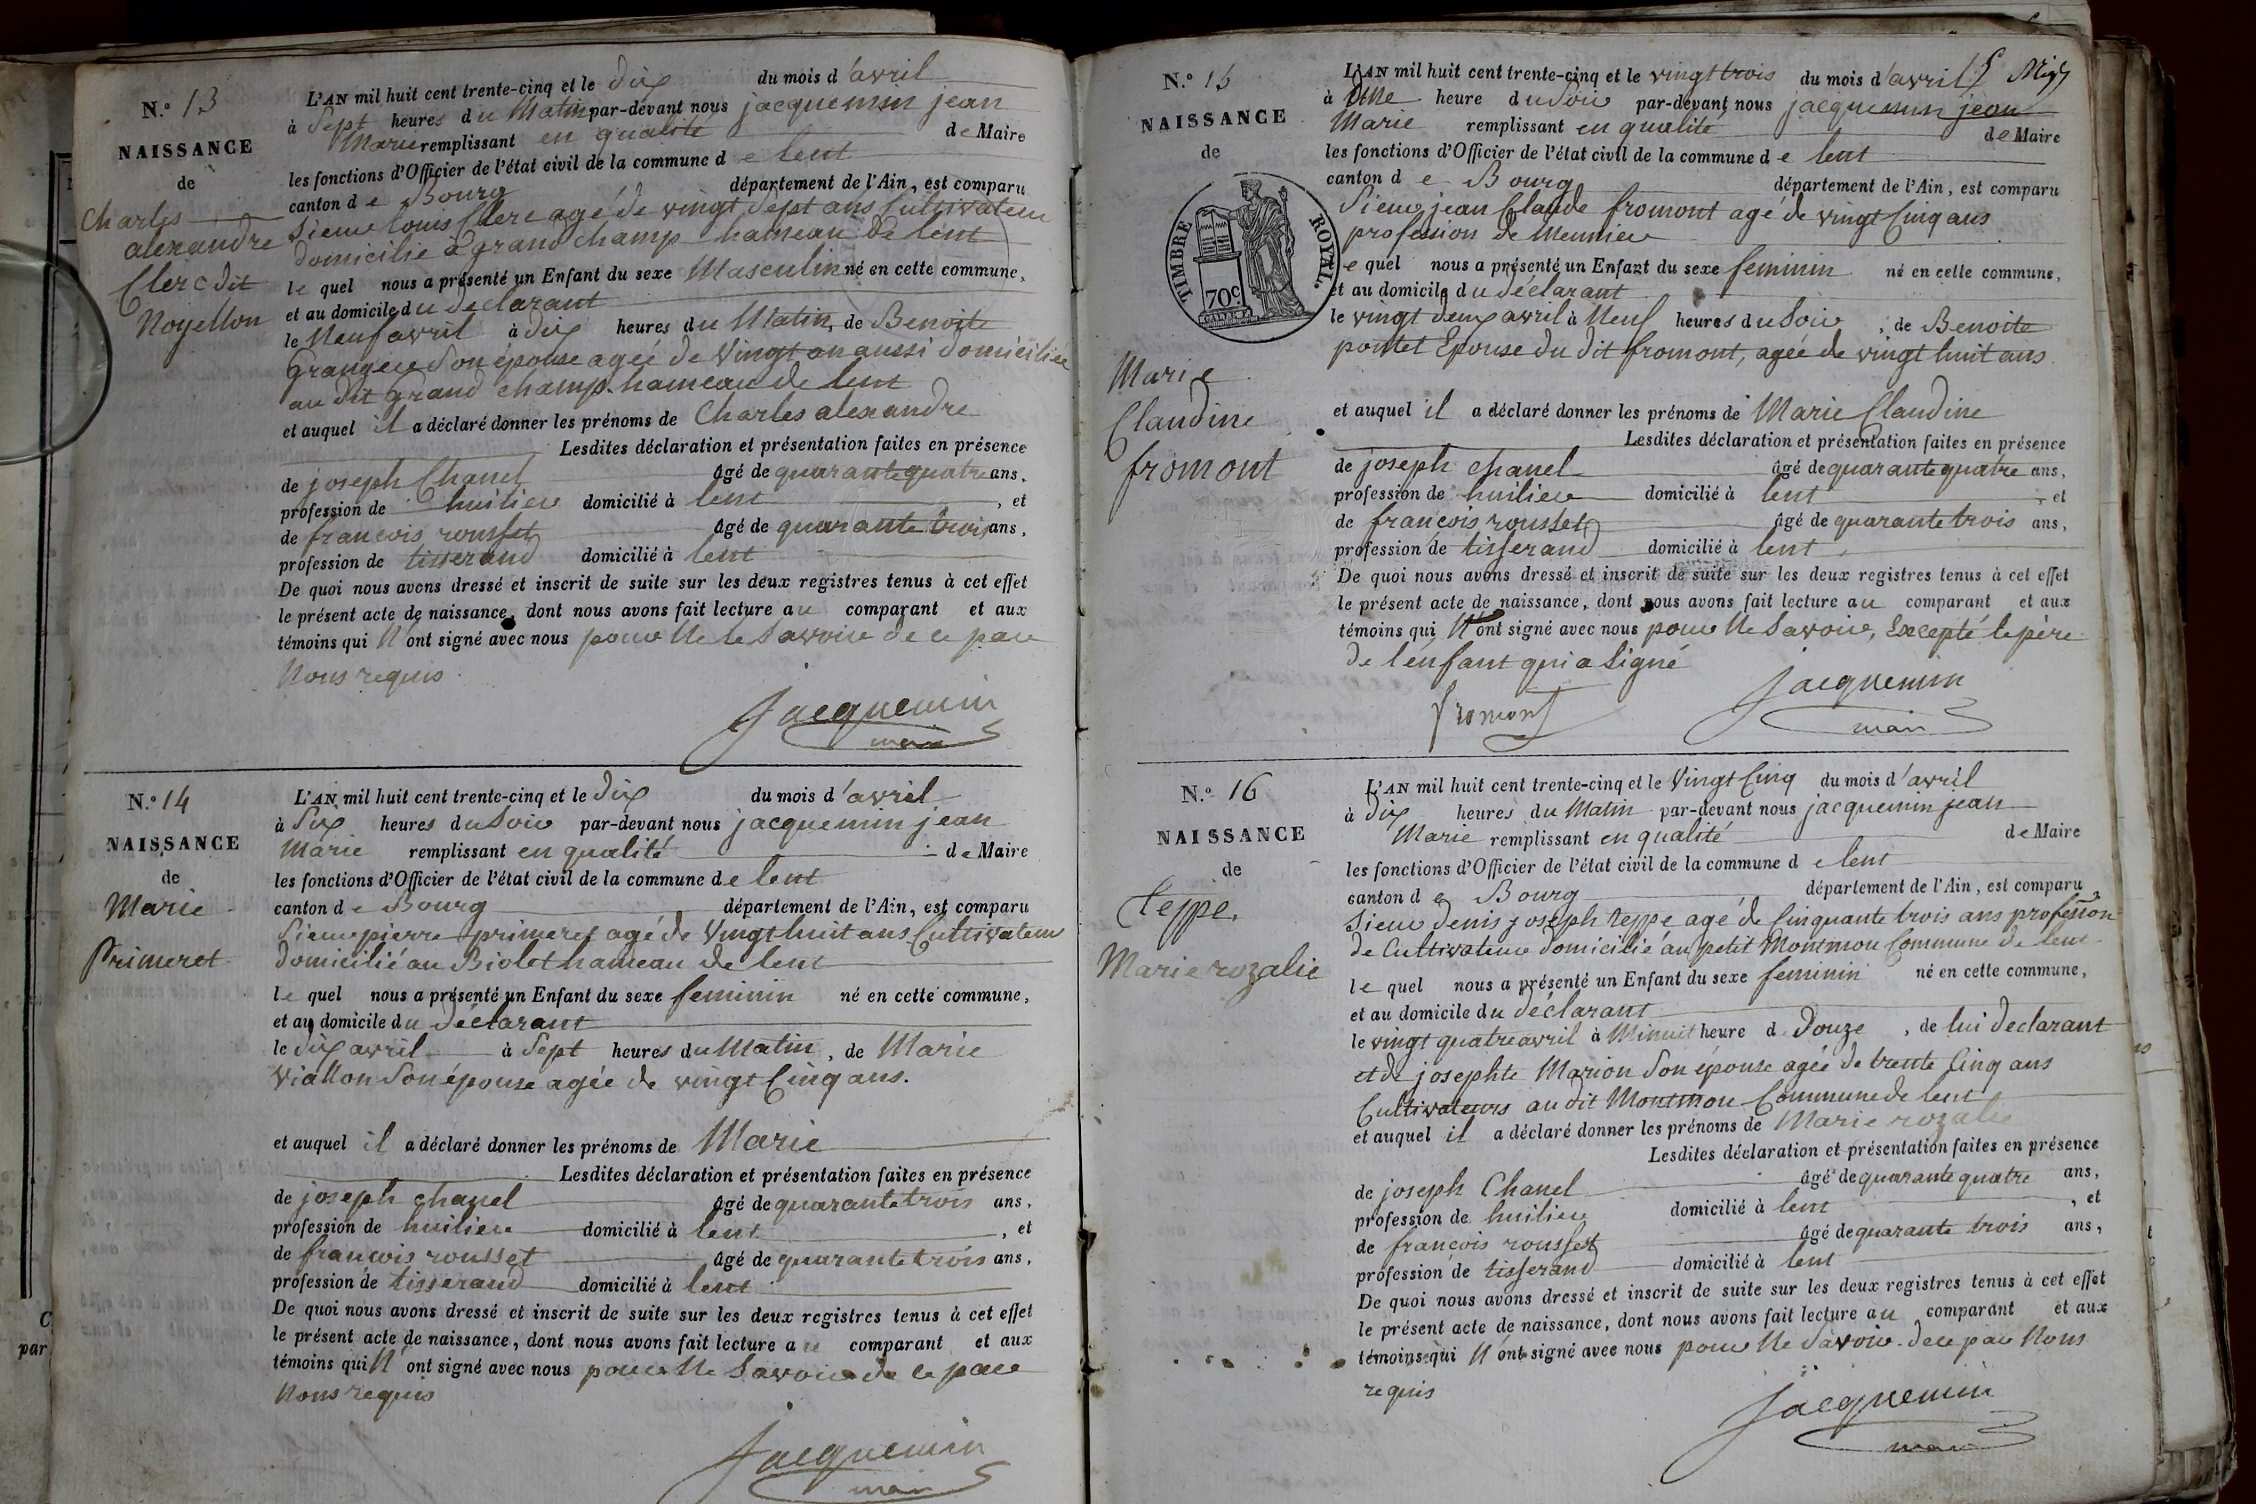 N.º 13
NAISSANCE
de
Charles
alexandre
Clerc dit
Noyellon
L'AN mil huit cent trente-cinq et le dix du mois d'avril
à Sept heures du Matin par-devant nous jacquemin jean
Marie remplissant en qualité de Maire
les fonctions d'Officier de l'état civil de la commune de lent
canton de Bourg département de l'Ain, est comparu
Sieur louis Clerc agé de vingt Sept ans Cultivateur
domicilié a grand champ hameau de lent
le quel nous a présenté un Enfant du sexe Masculin né en cette commune,
et au domicile du déclarant
le Neuf avril à dix heures du Matin, de Benoite
Grangere Son épouse agée de Vingt an aussi domiciliée
au dit grand champ. hameau de lent
et auquel il a déclaré donner les prénoms de Charles alexandre
Lesdites déclaration et présentation faites en présence
de joseph Chanel âgé de quarante quatre ans,
profession de huilier domicilié à lent, et
de francois rousset âgé de quarante trois ans,
profession de tisserand domicilié à lent
De quoi nous avons dressé et inscrit de suite sur les deux registres tenus à cet effet
le présent acte de naissance, dont nous avons fait lecture au comparant et aux
témoins qui N'ont signé avec nous pour Ne le Savoir de ce par
Nous requis
Jacquemin
maire
N.º 14
NAISSANCE
de
Marie
Primeret
L'AN mil huit cent trente-cinq et le dix du mois d'avril
à Six heures du Soir par-devant nous jacquemin jean
Marie remplissant en qualité de Maire
les fonctions d'Officier de l'état civil de la commune de lent
canton de Bourg département de l'Ain, est comparu
Sieur pierre primeret agé de Vingt huit ans Cultivateur
domicilié au Biolet hameau de lent
le quel nous a présenté un Enfant du sexe feminin né en cette commune,
et au domicile du déclarant
le dix avril à Sept heures du Matin, de Marie
Viallon Son épouse agée de vingt Cinq ans.
et auquel il a déclaré donner les prénoms de Marie
Lesdites déclaration et présentation faites en présence
de joseph chanel âgé de quarante trois ans,
profession de huilier domicilié à lent, et
de francois rousset âgé de quarante trois ans,
profession de tisserand domicilié à lent
De quoi nous avons dressé et inscrit de suite sur les deux registres tenus à cet effet
le présent acte de naissance, dont nous avons fait lecture au comparant et aux
témoins qui N'ont signé avec nous pour Ne Savoir de ce par
Nous requis
Jacquemin
maire
N.º 15
NAISSANCE
de
TIMBRE ROYAL.
70c
Marie
Claudine
fromont
L'AN mil huit cent trente-cinq et le vingt trois du mois d'avril
à Une heure du Soir par-devant nous jacquemin jean
Marie remplissant en qualité de Maire
les fonctions d'Officier de l'état civil de la commune de lent
canton de Bourg département de l'Ain, est comparu
Sieur jean Claude fromont agé de vingt Cinq ans
profession de Meunier
le quel nous a présenté un Enfant du sexe feminin né en cette commune,
et au domicile du déclarant
le vingt deux avril à Neuf heures du Soir, de Benoite
pontet Epouse du dit fromont, agée de vingt huit ans
et auquel il a déclaré donner les prénoms de Marie Claudine
Lesdites déclaration et présentation faites en présence
de joseph chanel âgé de quarante quatre ans,
profession de huilier domicilié à lent, et
de francois rousset âgé de quarante trois ans,
profession de tisserand domicilié à lent
De quoi nous avons dressé et inscrit de suite sur les deux registres tenus à cet effet
le présent acte de naissance, dont nous avons fait lecture au comparant et aux
témoins qui N'ont signé avec nous pour Ne Savoir, Excepté le père
de l'enfant qui a Signé
fromont
Jacquemin
maire
N.º 16
NAISSANCE
de
teppe.
Marie rozalie
L'AN mil huit cent trente-cinq et le Vingt Cinq du mois d'avril
à dix heures du Matin par-devant nous jacquemin jean
Marie remplissant en qualité de Maire
les fonctions d'Officier de l'état civil de la commune de lent
canton de Bourg département de l'Ain, est comparu
Sieur denis joseph teppe agé de Cinquante trois ans profession
de Cultivateur domicilié au petit Montmou Commune de lent
le quel nous a présenté un Enfant du sexe feminin né en cette commune,
et au domicile du déclarant
le vingt quatre avril à Minuit heure d Douze, de lui declarant
et de josephte Marion Son épouse agée de trente Cinq ans
Cultivateurs au dit Montmou Commune de lent
et auquel il a déclaré donner les prénoms de Marie rozalie
Lesdites déclaration et présentation faites en présence
de joseph Chanel âgé de quarante quatre ans,
profession de huilier domicilié à lent, et
de francois rousset âgé de quarante trois ans,
profession de tisserand domicilié à lent
De quoi nous avons dressé et inscrit de suite sur les deux registres tenus à cet effet
le présent acte de naissance, dont nous avons fait lecture au comparant et aux
témoins qui N'ont signé avec nous pour Ne Savoir de ce par Nous
requis
Jacquemin
maire